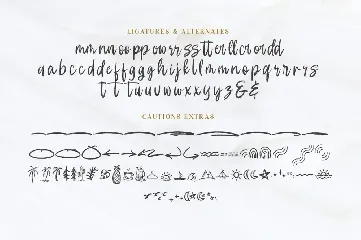 LIGATURES & ALTERNATES
mm nn oo pp ow rr ss tt er ll cr or dd
a a b c c d d e f f g g g h i j k l l m m n o p q r r r r s
t t t a u v w w x x y y z & &
CAUTIONS EXTRAS